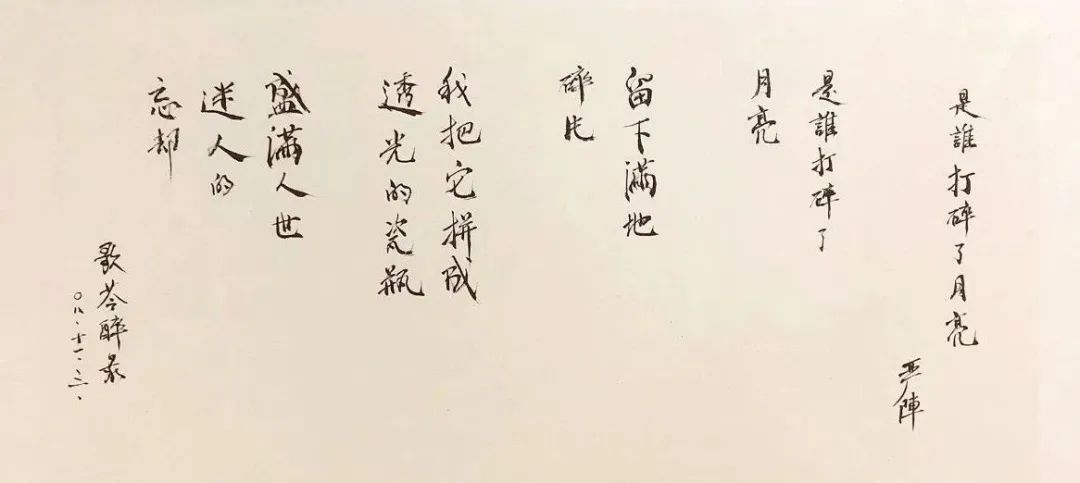 是誰打碎了月亮
严陣
是誰打碎了
月亮
留下滿地
碎片
我把它拼成
透光的瓷瓶
盛滿人世
迷人的
忘却
歌苓醉录
〇八.十一.三.